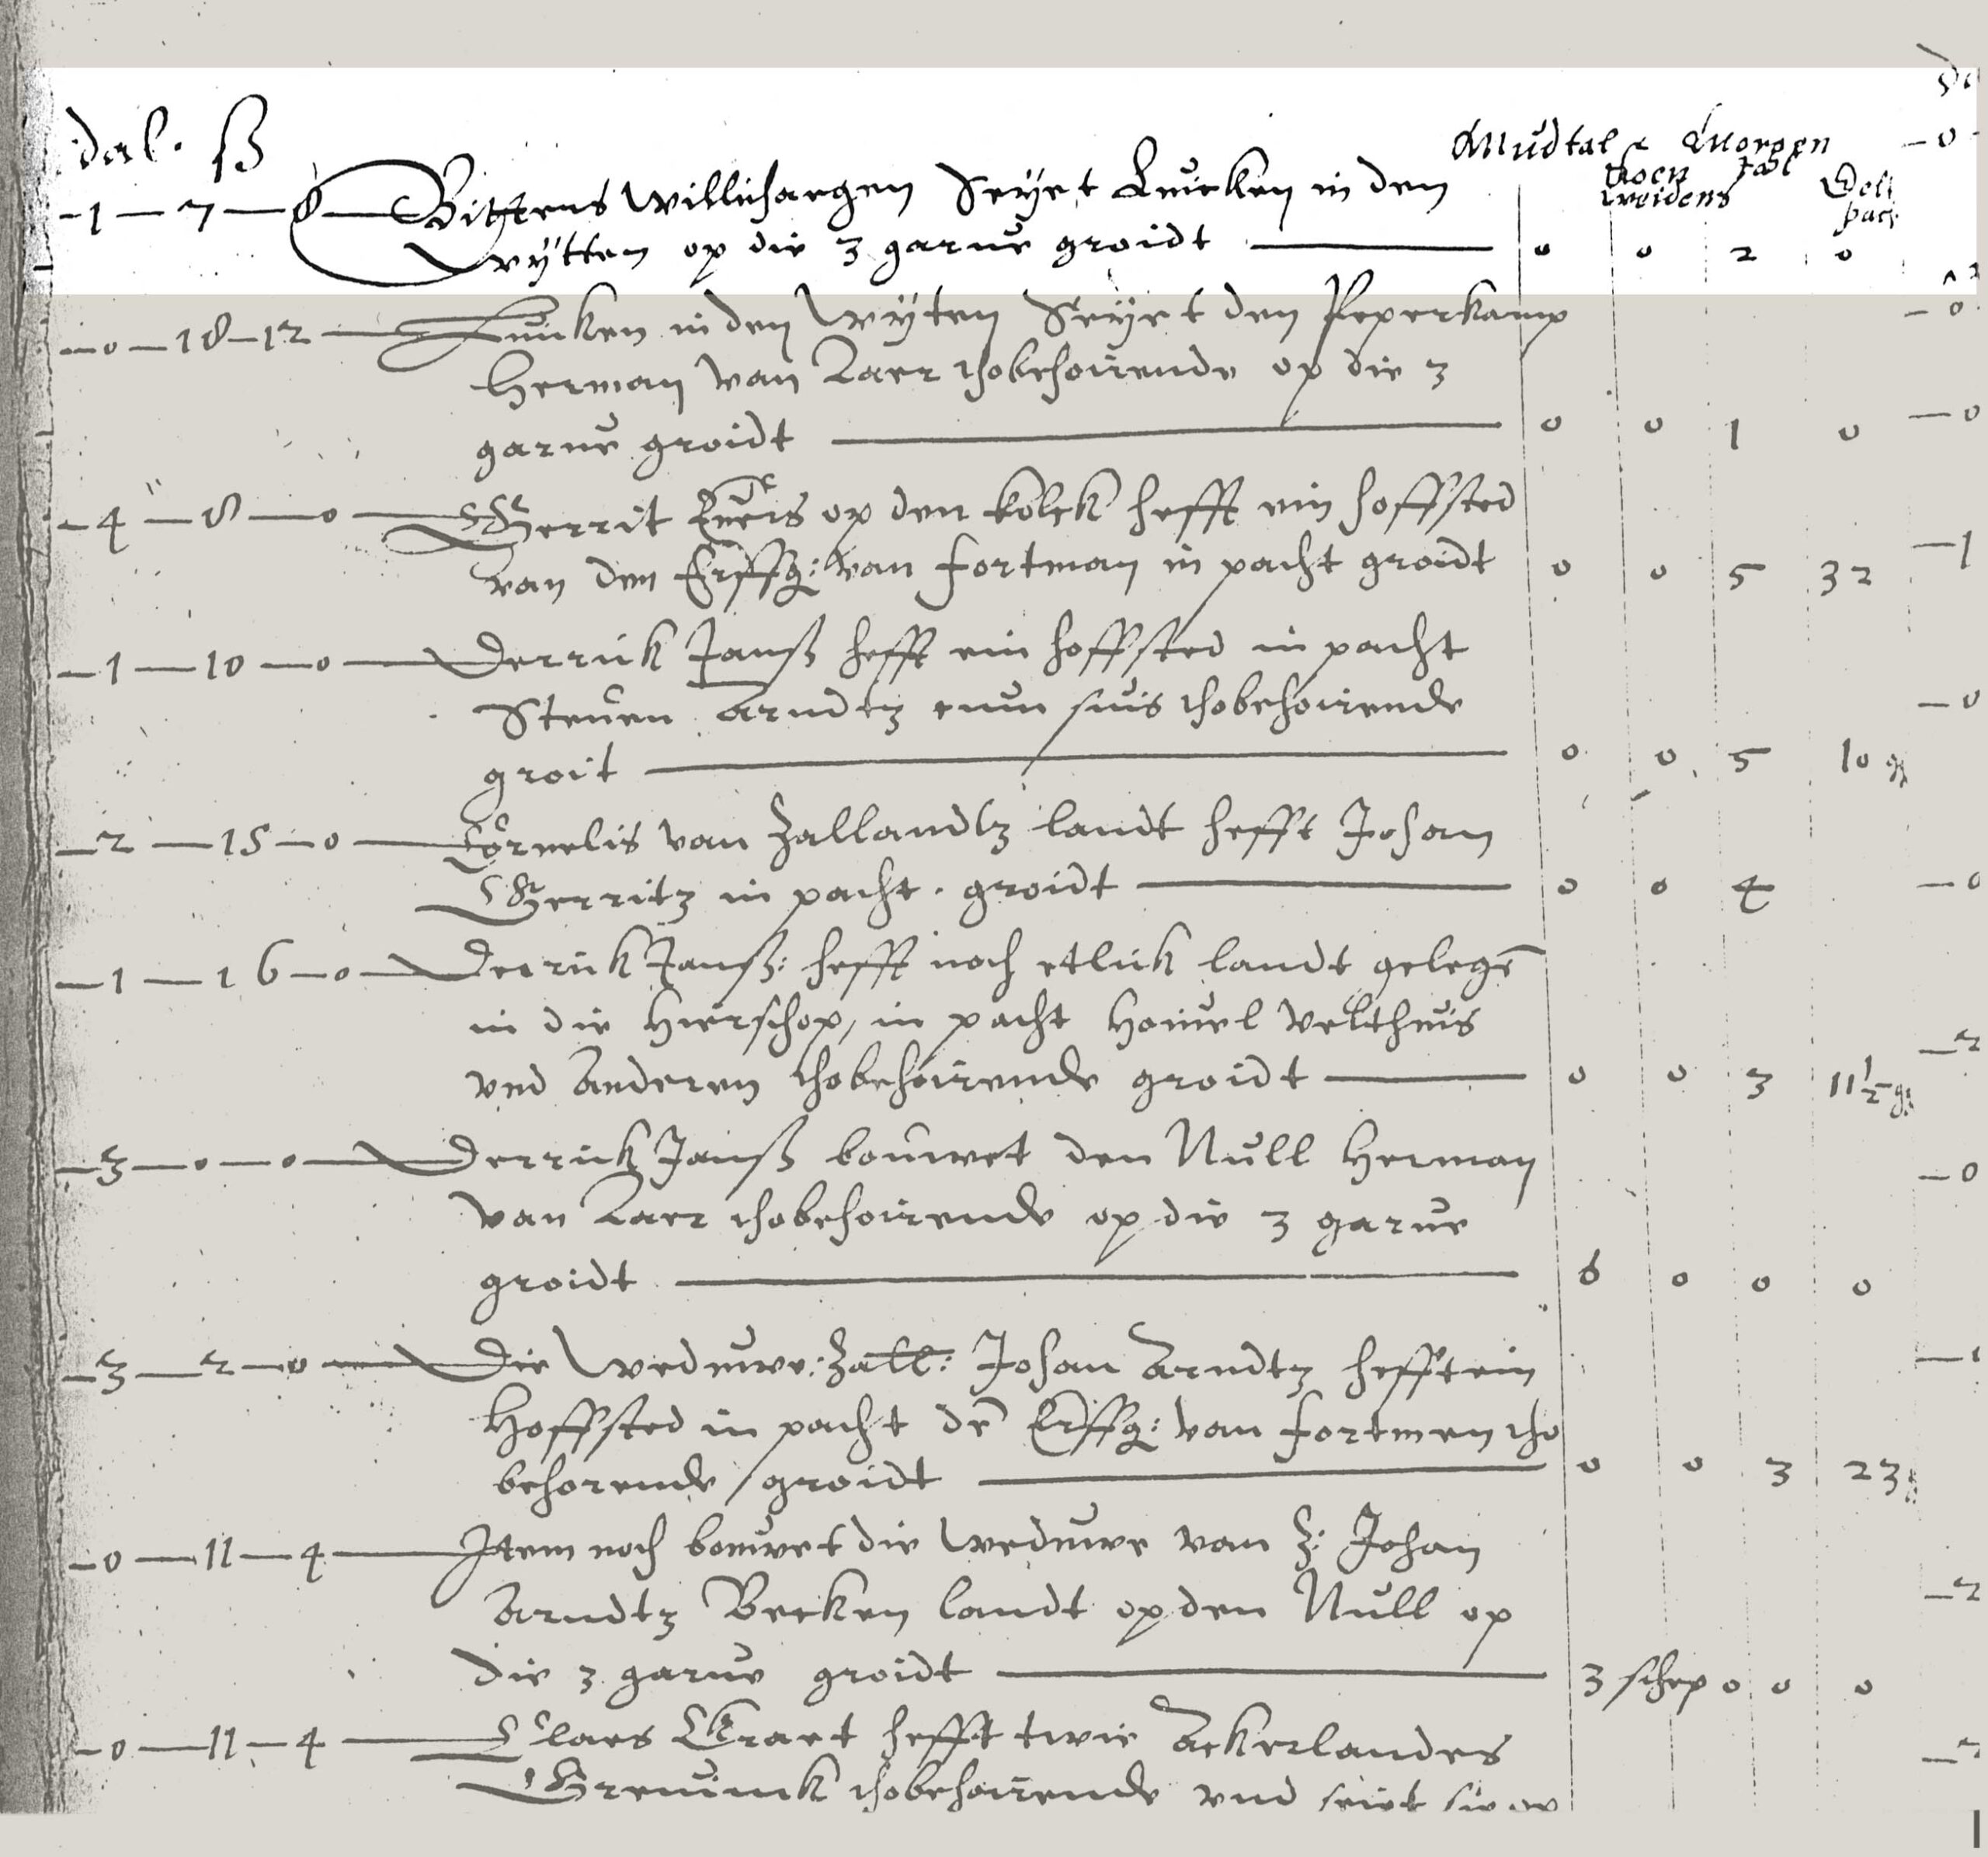 dal. ß
Mudtal Morgen tal
Koen weidens
Gelt pacht
-1-7-8- Willichargen Seyet Luicken in den
Wÿtten op die 3 garve groidt — 0 0 2 0
-0-18-12- Luicken in den Wÿten Seyet den Peperkamp
Herman van Laer thobehoirende op die 3
garve groidt — 0 0 1 0
-4-8-0- Gerrit Evers op den kolck hefft ein hoffsted
van den Erffg: van Fortman in pacht groidt 0 0 5 32
-1-10-0- Derrick Janß hefft ein hoffsted in pacht
Steven Arndtz cum suis thobehoirende
groit — 0 0 5 10 g
-2-15-0- Cornelis van Zallandtz landt hefft Johan
Gerritz in pacht. groidt — 0 0 4
-1-16-0- Derrick Janß: hefft noch etlick landt gelegē
in die Hierschop, in pacht Henrel Velthuis
und Anderen thobehoirende groidt — 0 0 3 11½ g:
-3-0-0- Derrick Janß bouwet den Null Herman
van Laer thobehoirende op die 3 garve
groidt — 6 0 0 0
-3-2-0- Die Weduwe: Zall: Johan Arndtz hefft ein
Hoffsted in pacht dē Erffg: van Fortmen tho
behorende groidt — 0 0 3 23
-0-11-4- Item noch bouwet die Weduwe van Z: Johan
Arndtz Becken landt op den Null op
die 3 garve groidt — 3 schep 0 0 0
-0-11-4- Claes hefft twie Ackerlandes
Grevinck thobehoirende und